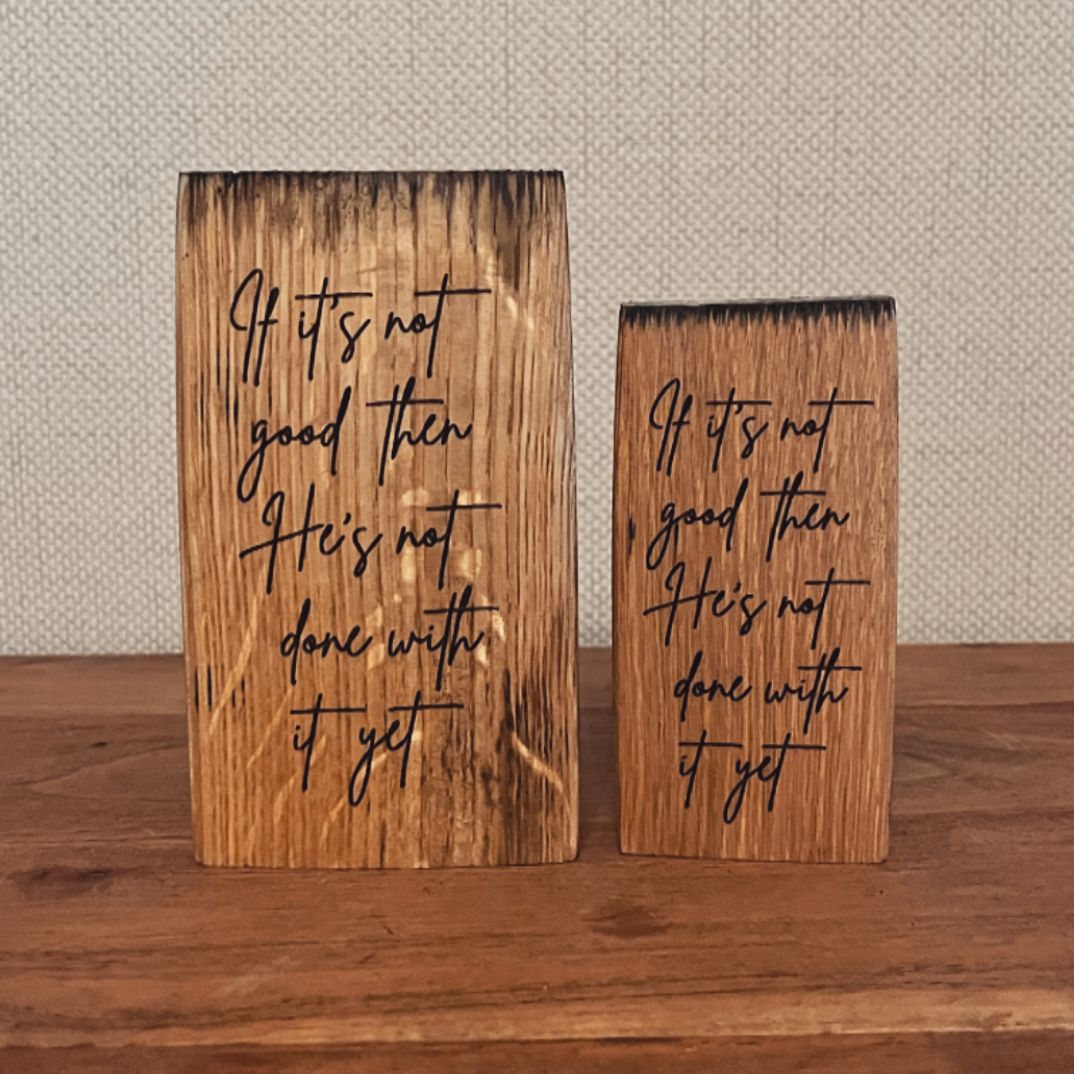 If it's not
good then
He's not
done with
it yet
If it's not
good then
He's not
done with
it yet